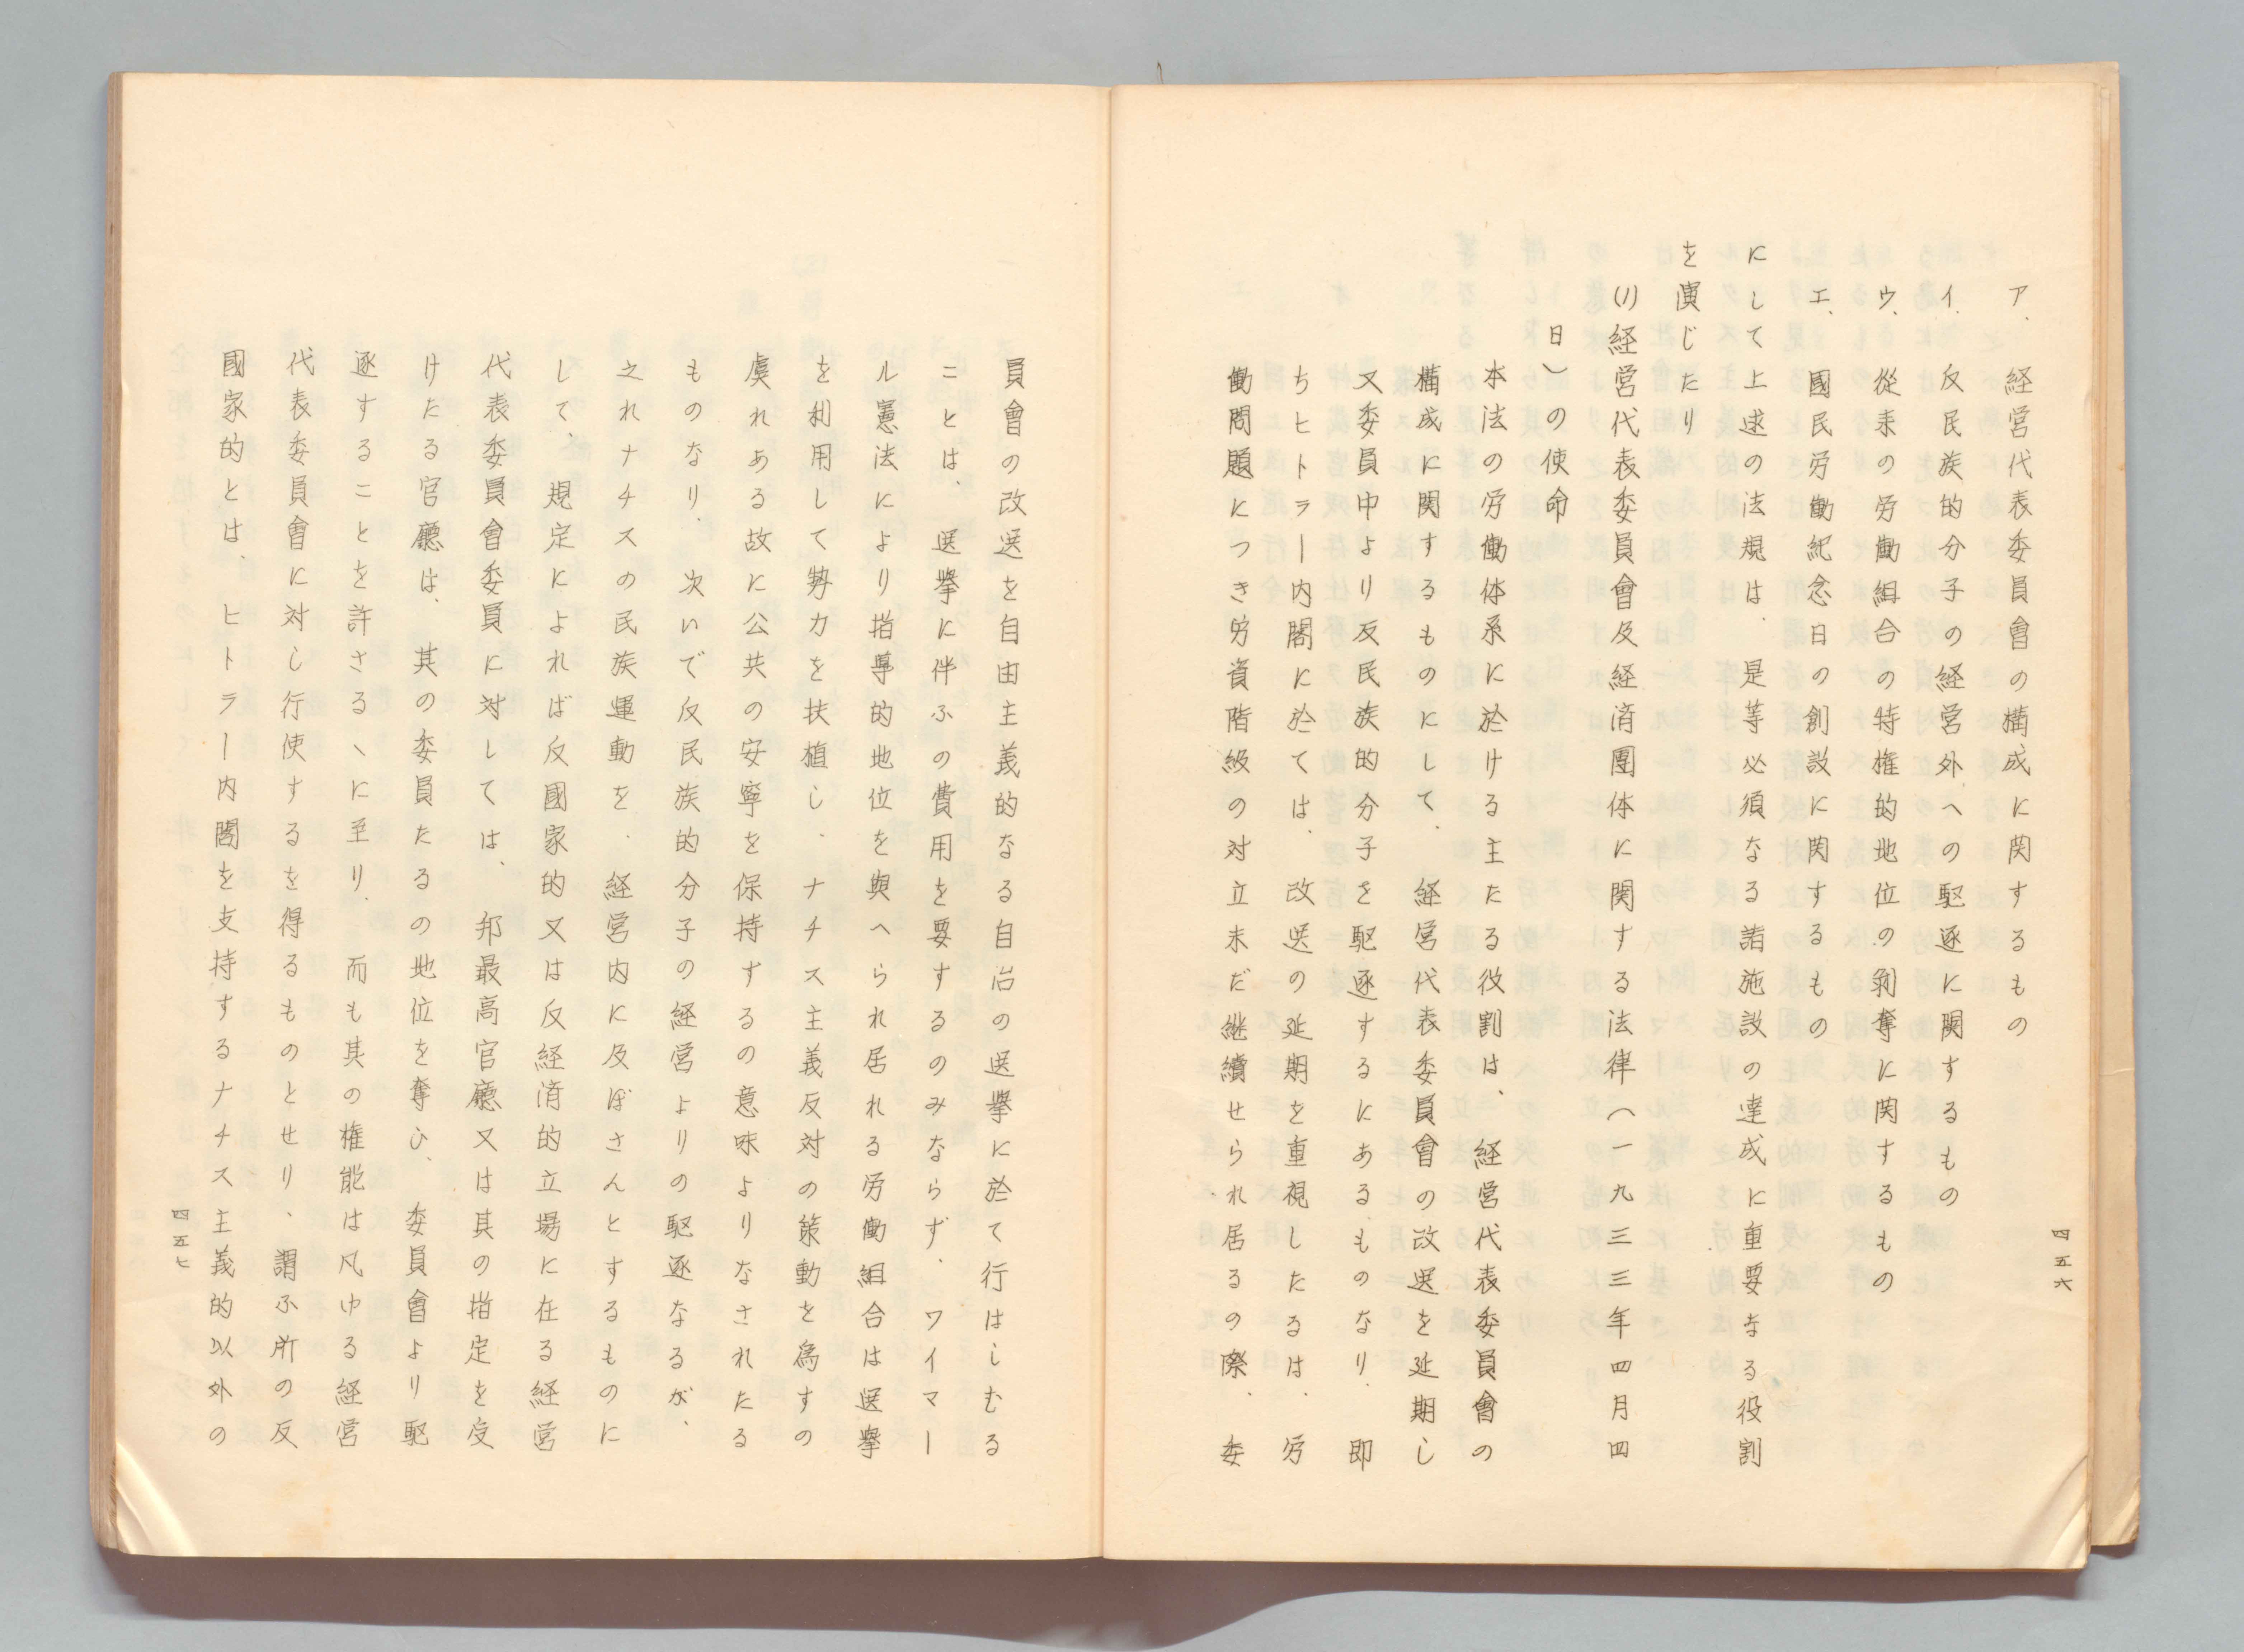 四五六
ア、経営代表委員會の構成に関するもの
イ、反民族的分子の経営外への駆逐に関するもの
ウ、從来の労働組合の特権的地位の剥奪に関するもの
エ、國民労働紀念日の創設に関するもの
にして上述の法規は、是等必須なる諸施設の達成に重要なる役割
を演じたり
(1)経営代表委員會及経済團体に関する法律(一九三三年四月四
日)の使命
本法の労働体系に於ける主たる役割は、経営代表委員會の
構成に関するものにして、経営代表委員會の改選を延期し
又委員中より反民族的分子を駆逐するにあるものなり、即
ちヒトラー内閣に於ては、改选の延期を重視したるは、労
働問題につき労資階級の対立未だ継續せられ居るの際、委
員會の改选を自由主義的なる自治の选擧に於て行はしむる
ことは、选擧に伴ふの費用を要するのみならず、ワイマー
ル憲法により指導的地位を與へられ居れる労働組合は选擧
を利用して勢力を扶植し、ナチス主義反対の策動を為すの
虞れある故に公共の安寧を保持するの意味よりなされたる
ものなり、次いで反民族的分子の経営よりの駆逐なるが、
之れナチスの民族運動を、経営内に及ぼさんとするものに
して、規定によれば反國家的又は反経済的立場に在る経営
代表委員會委員に対しては、邦最高官廳又は其の指定を受
けたる官廳は、其の委員たるの地位を奪ひ、委員會より駆
逐することを許さるヽに至り、而も其の権能は凡ゆる経営
代表委員會に対し行使するを得るものとせり、謂ふ所の反
國家的とは、ヒトラー内閣を支持するナチス主義的以外の
四五七